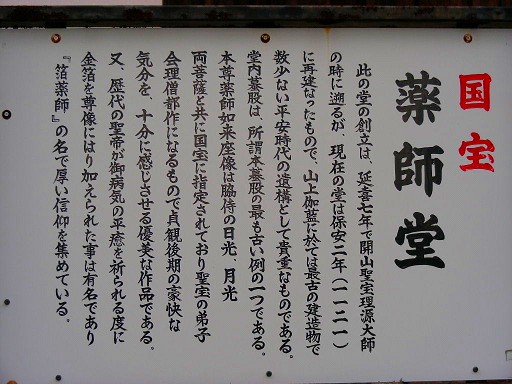 国宝
薬師堂
此の堂の創立は、延喜七年で開山聖宝理源大師
の時に遡るが、現在の堂は保安二年（一一二一）
に再建なったもので、山上伽藍に於ては最古の建造物で
数少ない平安時代の遺構として貴重なものである。
堂内蟇股は、所謂本蟇股の最も古い例の一つである。
本尊薬師如来座像は脇侍の日光、月光
両菩薩と共に国宝に指定されており聖宝の弟子
会理僧都作になるもので貞観後期の豪快な
気分を、十分に感じさせる優美な作品である。
又、歴代の聖帝が御病気の平癒を祈られる度に
金箔を尊像にはり加えられた事は有名であり
『箔薬師』の名で厚い信仰を集めている。